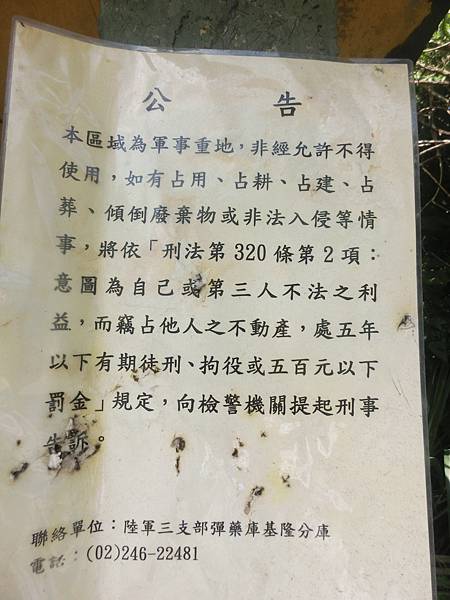 公告
本區域為軍事重地，非經允許不得
使用，如有占用、占耕、占建、占
葬、傾倒廢棄物或非法入侵等情
事，將依「刑法第320條第2項：
意圖為自己或第三人不法之利
益，而竊占他人之不動產，處五年
以下有期徒刑、拘役或五百元以下
罰金」規定，向檢警機關提起刑事
告訴。
聯絡單位：陸軍三支部彈藥庫基隆分庫
電話：(02)246-22481